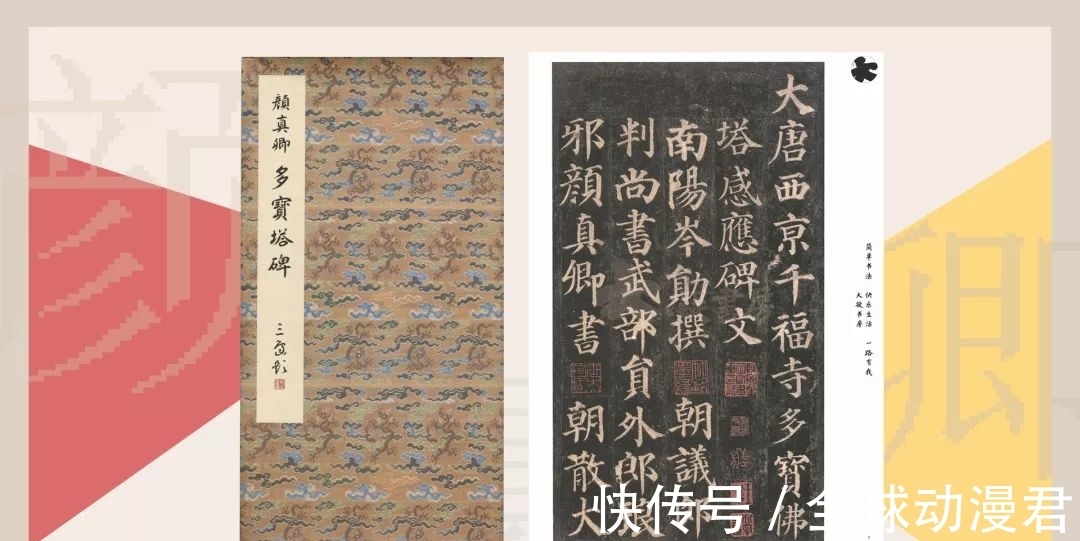 顏真卿 多寶塔碑
大唐西京千福寺多寶佛
塔感應碑文
南陽岑勛撰 朝議郎
判尚書武部員外郎
邪顏真卿書 朝散大
简单书法 快乐生活 一路有我
快传号 / 全球动漫君